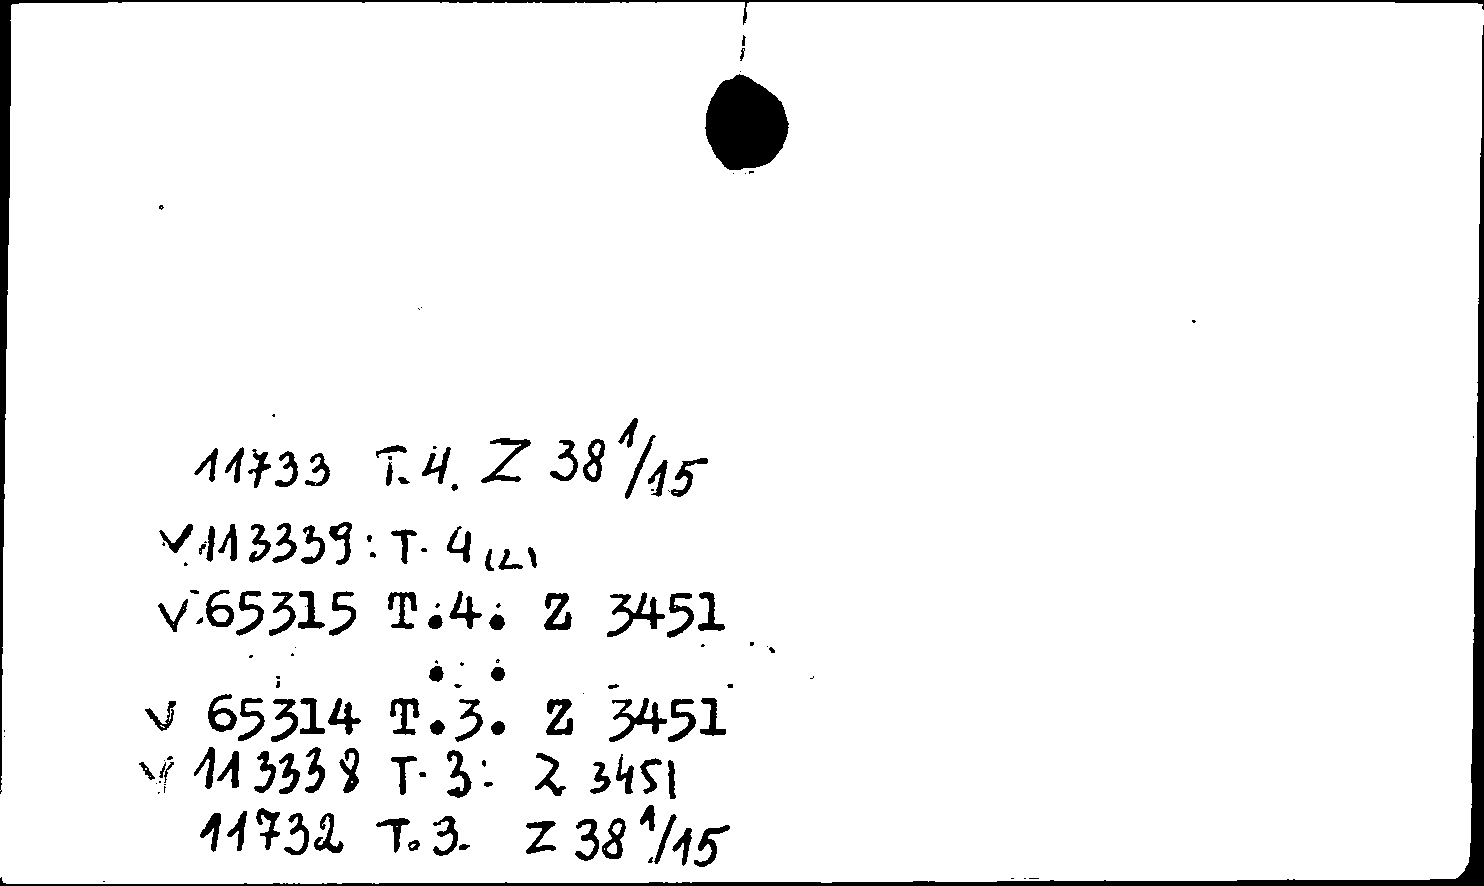 11733 T. 4. Z 38 1/15
V 113339: T. 4 (L)
V 65315 T.4. Z 3451
V 65314 T.3. Z 3451
V 113338 T. 3: Z 3451
11732 T. 3. Z 38 1/15